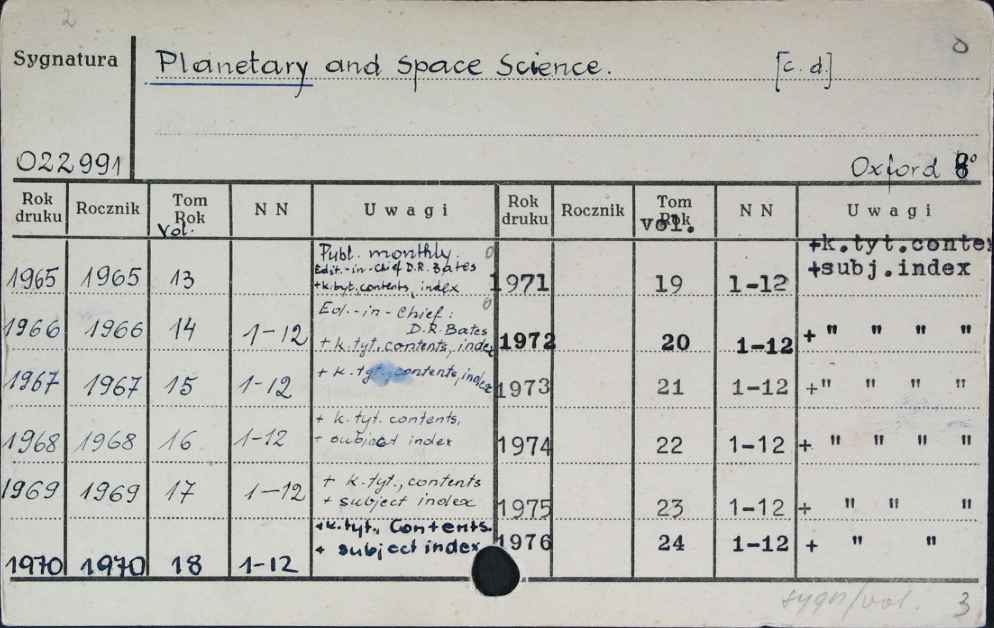 2
Sygnatura
Planetary and Space Science. [c. d.]
022991
Oxford 8°
Rok druku Rocznik Tom Rok Vol. N N Uwagi Rok druku Rocznik Tom Rok vol. N N Uwagi
1965 1965 13 Publ. monthly.
Edit.-in-Chief D.R. Bates
+k.tyt., contents, index
1971 19 1-12 +k.tyt.conte
+subj.index
1966 1966 14 1-12 Ed.-in-Chief:
D.R. Bates
+ k.tyt., contents, index
1972 20 1-12 + " " " "
1967 1967 15 1-12 + k.tyt., contents, index
1973 21 1-12 +" " " "
1968 1968 16 1-12 + k.tyt. contents,
+ subject index
1974 22 1-12 + " " " "
1969 1969 17 1-12 + k.tyt., contents
+ subject index
1975 23 1-12 + " " "
1970 1970 18 1-12 +k.tyt., Contents.
+ subject index
1976 24 1-12 + " "
sygn/vol. 3